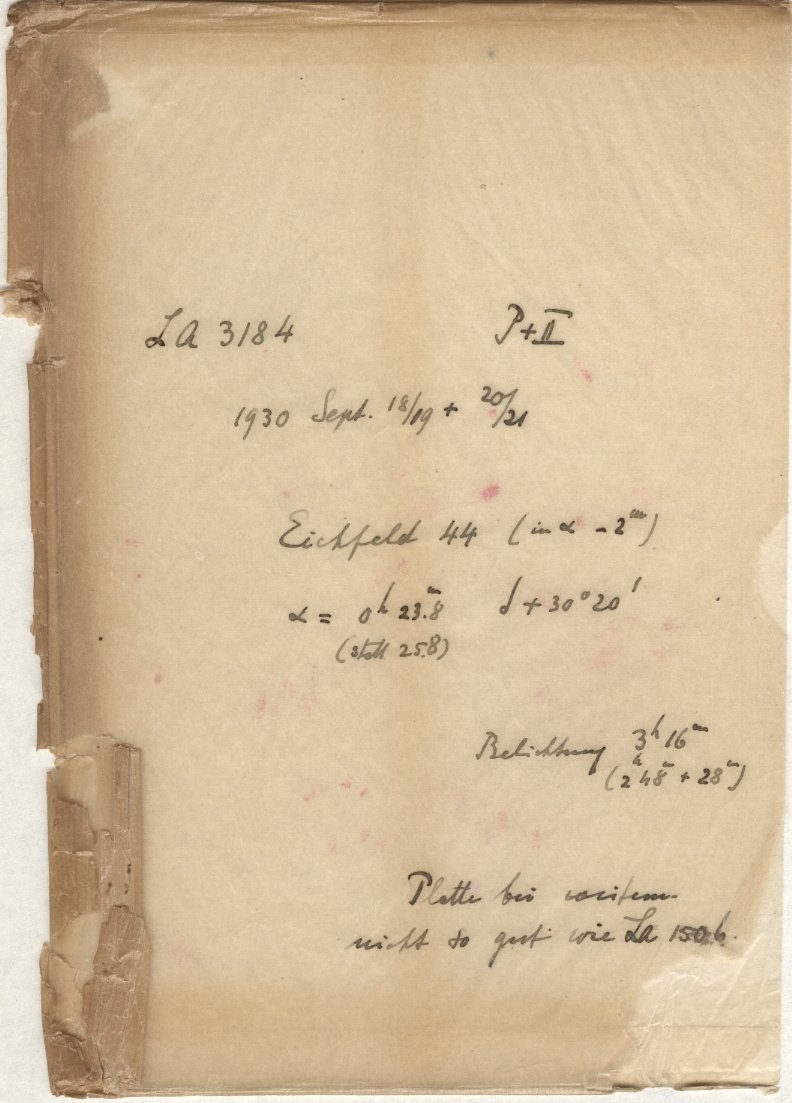 LA 3184 P+II
1930 Sept. 18/19 + 20/21
Eichfeld 44 (in α - 2ᵐ)
α = 0ʰ 23.8ᵐ δ + 30° 20'
(statt 25.8)
Belichtung 3ʰ 16ᵐ
(2ʰ 48ᵐ + 28ᵐ)
Platte bei weitem
nicht so gut wie La 150